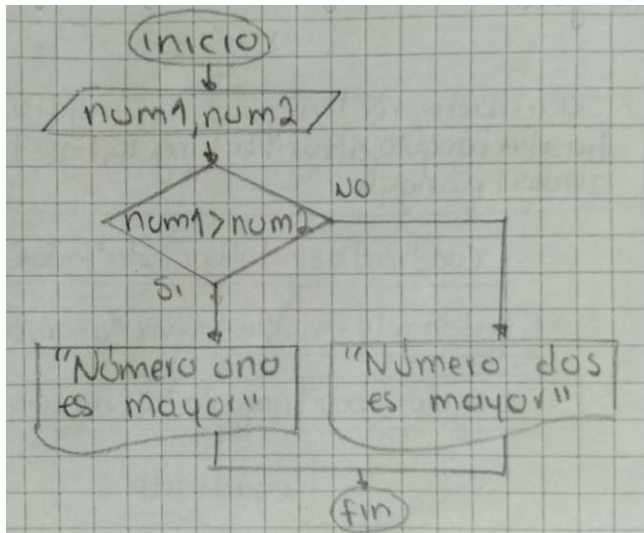 inicio
num1, num2
num1>num2
NO
Si
"Número uno
es mayor"
"Número dos
es mayor"
fin